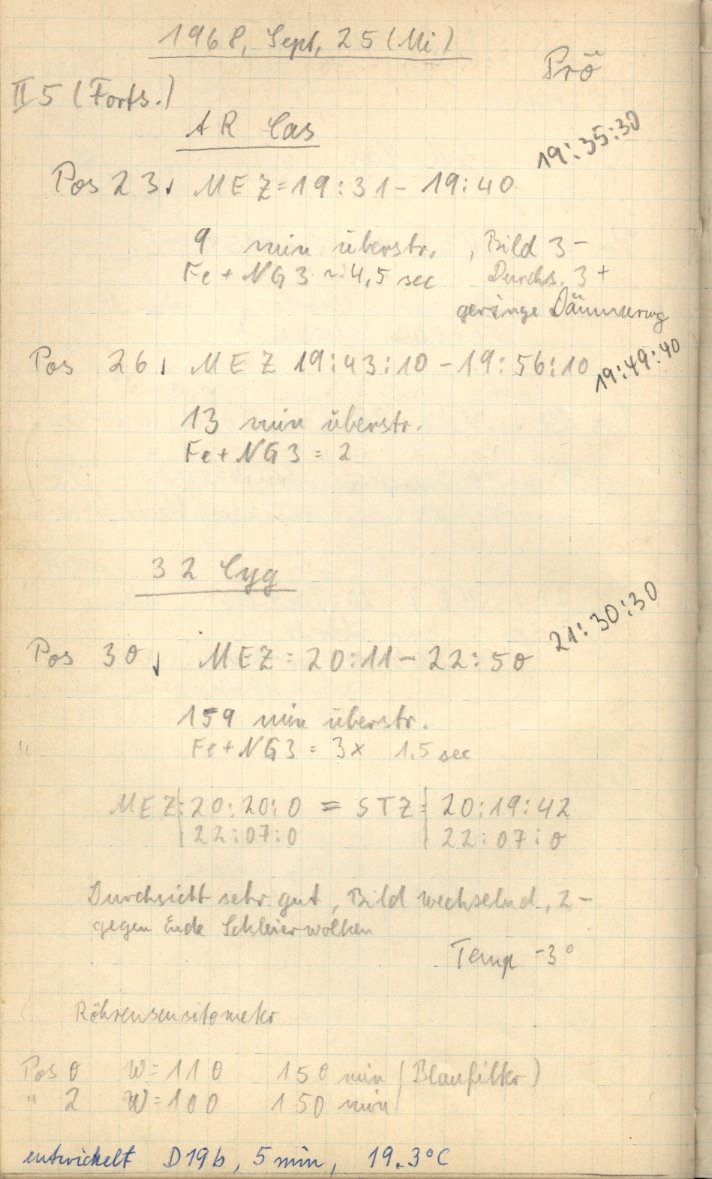 1968, Sept. 25 (Mi)
Prö
II 5 (Forts.)
AR Cas
19:35:30
Pos 23, MEZ=19:31-19:40
9 min überstr., Bild 3-
Fe+NG3 ~ 4,5 sec Durchs. 3+
geringe Dämmerung
Pos 26, MEZ 19:43:10-19:56:10
19:49:40
13 min überstr.
Fe+NG3 = 2
32 Cyg
21:30:30
Pos 30, MEZ = 20:11-22:50
159 min überstr.
" Fe+NG3 = 3x 1,5 sec
MEZ: 20:20:0 = STZ: 20:19:42
22:07:0 22:07:0
Durchsicht sehr gut, Bild wechselnd, 2-
gegen Ende Schleierwolken
Temp -3°
Röhrensensitometer
Pos 0 W=110 150 min (Blaufilter)
" 2 W=100 150 min
entwickelt D19b, 5 min, 19.3°C